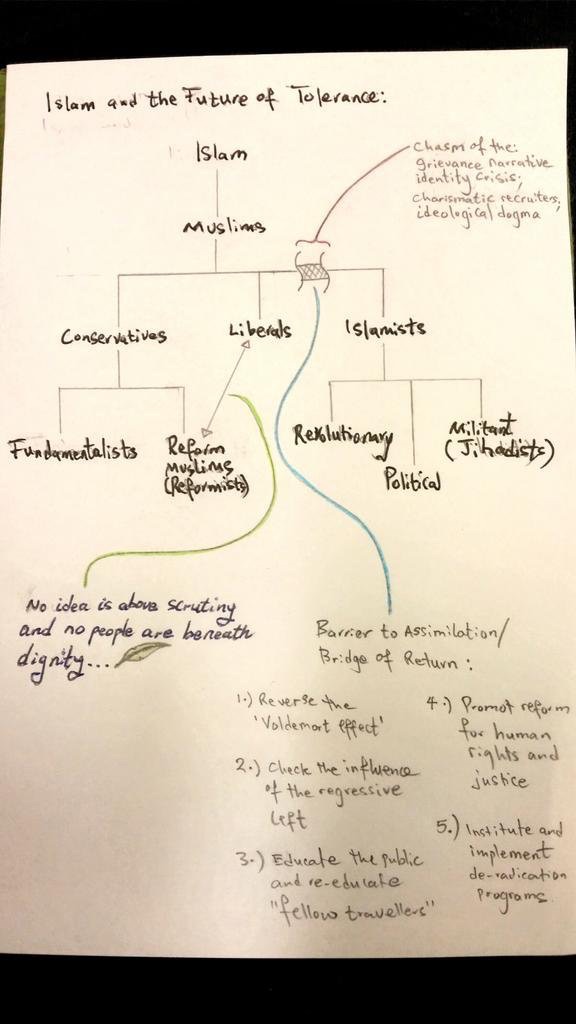 Islam and the Future of Tolerance:
Islam
Chasm of the:
grievance narrative
identity crisis;
charismatic recruiters;
ideological dogma
Muslims
Conservatives
Liberals
Islamists
Fundamentalists
Reform
Muslims
(Reformists)
Revolutionary
Political
Militant
(Jihadists)
No idea is above scrutiny
and no people are beneath
dignity...
Barrier to Assimilation/
Bridge of Return:
1.) Reverse the
'Voldemort effect'
2.) Check the influence
of the regressive
left
3.) Educate the public
and re-educate
"fellow travellers"
4.) Promot reform
for human
rights and
justice
5.) Institute and
implement
de-radication
programs.